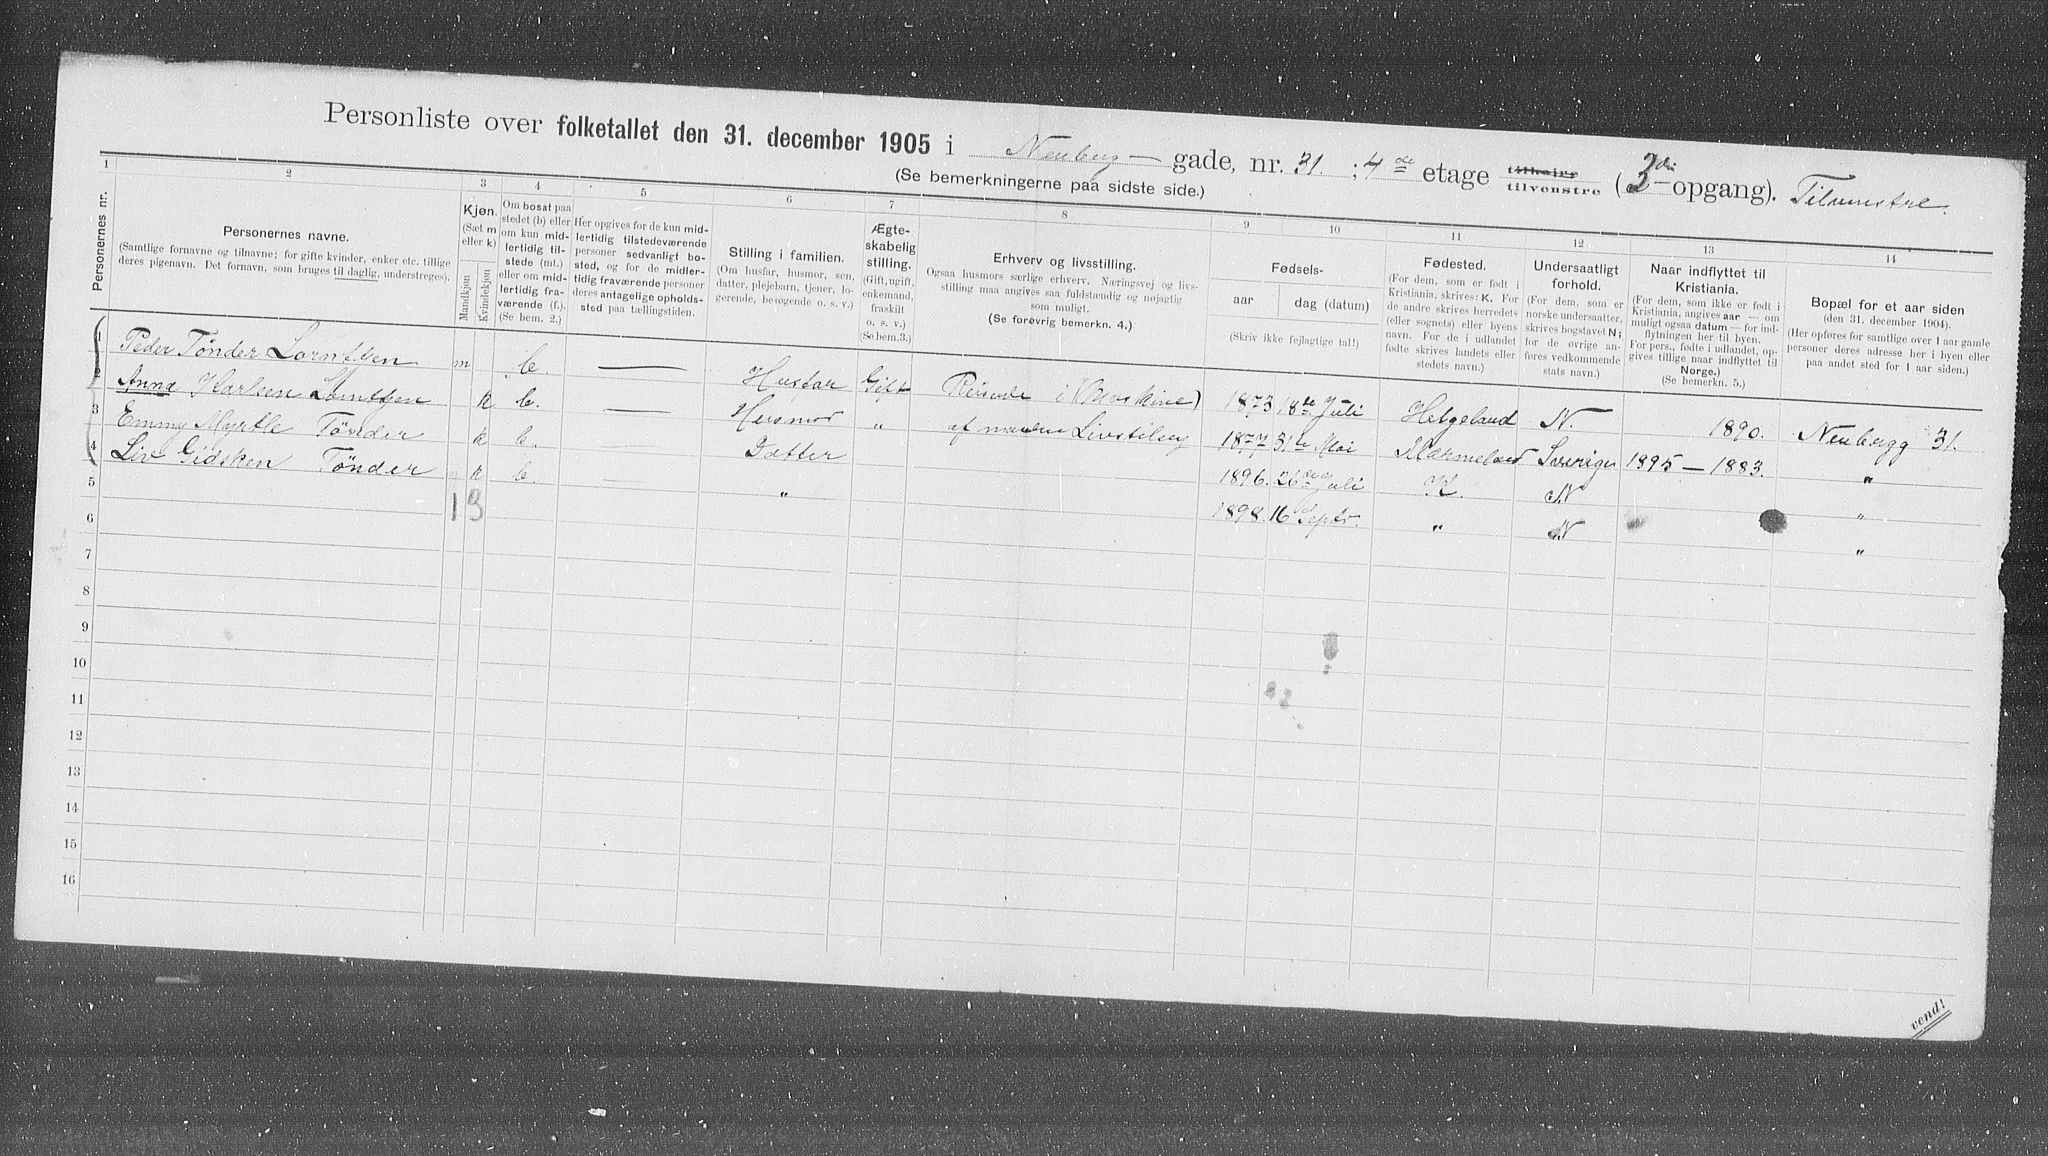 Personliste over folketallet den 31. december 1905 i Neuberg— gade, nr. 31. ; 4de etage tilhøire tilvenstre ( 3die -opgang). Tilvenstre.
(Se bemerkningerne paa sidste side.)
1 2 3 4 5 6 7 8 9 10 11 12 13 14
Personernes nr.
Personernes navne.
(Samtlige fornavne og tilnavne; for gifte kvinder, enker etc. tillige
deres pigenavn. Det fornavn, som bruges til daglig, understreges).
Kjøn.
(Sæt m
eller k)
Mandkjøn
Kvindekjøn
Om bosat paa
stedet (b) eller
om kun mid-
lertidig til-
stede (mt.)
eller om mid-
lertidig fra-
værende (f.).
(Se bem. 2.)
Her opgives for de kun mid-
lertidig tilstedeværende
personer sedvanligt bo-
sted, og for de midler-
tidig fraværende personer
deres antagelige opholds-
sted paa tællingstiden.
Stilling i familien.
(Om husfar, husmor, søn,
datter, plejebarn, tjener, lo-
gerende, besøgende o. s. v.)
Ægte-
skabelig
stilling.
(Gift, ugift,
enkemand,
fraskilt
o. s. v.)
(Se bem. 3.)
Erhverv og livsstilling.
Ogsaa husmors særlige erhverv. Næringsvej og livs-
stilling maa angives saa fuldstændig og nøjagtig
som muligt.
(Se forøvrig bemerkn. 4.)
Fødsels-
aar
dag (datum)
(Skriv ikke fejlagtige tal!)
Fødested.
(For dem, som er født i
Kristiania, skrives: K. For
de andre skrives herredets
(eller sognets) eller byens
navn. For de i udlandet
fødte skrives landets eller
stedets navn.)
Undersaatligt
forhold.
(For dem, som er
norske undersaatter,
skrives bogstavet N;
for de øvrige an-
føres vedkommende
stats navn.)
Naar indflyttet til
Kristiania.
(For dem, som ikke er født i
Kristiania, angives aar — om
muligt ogsaa datum — for ind-
flytningen her til byen.
For pers., fødte i udlandet, op-
gives tillige naar indflyttet til
Norge.)
(Se bemerkn. 5.)
Bopæl for et aar siden
(den 31. december 1904).
(Her opføres for samtlige over 1 aar gamle
personer deres adresse her i byen eller
paa andet sted for 1 aar siden.)
1 Peder Tønder Lorntzen m b. — Husfar Gift Reisende i (Maskiner) 1873 18de Juli Helgeland N. 1890. Neubergg 31.
2 Anna Karlsen Lorntzen k b. — Husmor " af mandens Livstilling 1877 31te Mai Værmeland Sverige 1895 — 1883. "
3 Emmy Myrtle Tønder k b. — Datter 1896. 26de Juli K. N "
4 Liv Gidsken Tønder k b. — " 1898. 16 Septr. " N "
5
1 3
6
7
8
9
10
11
12
13
14
15
16
vend!